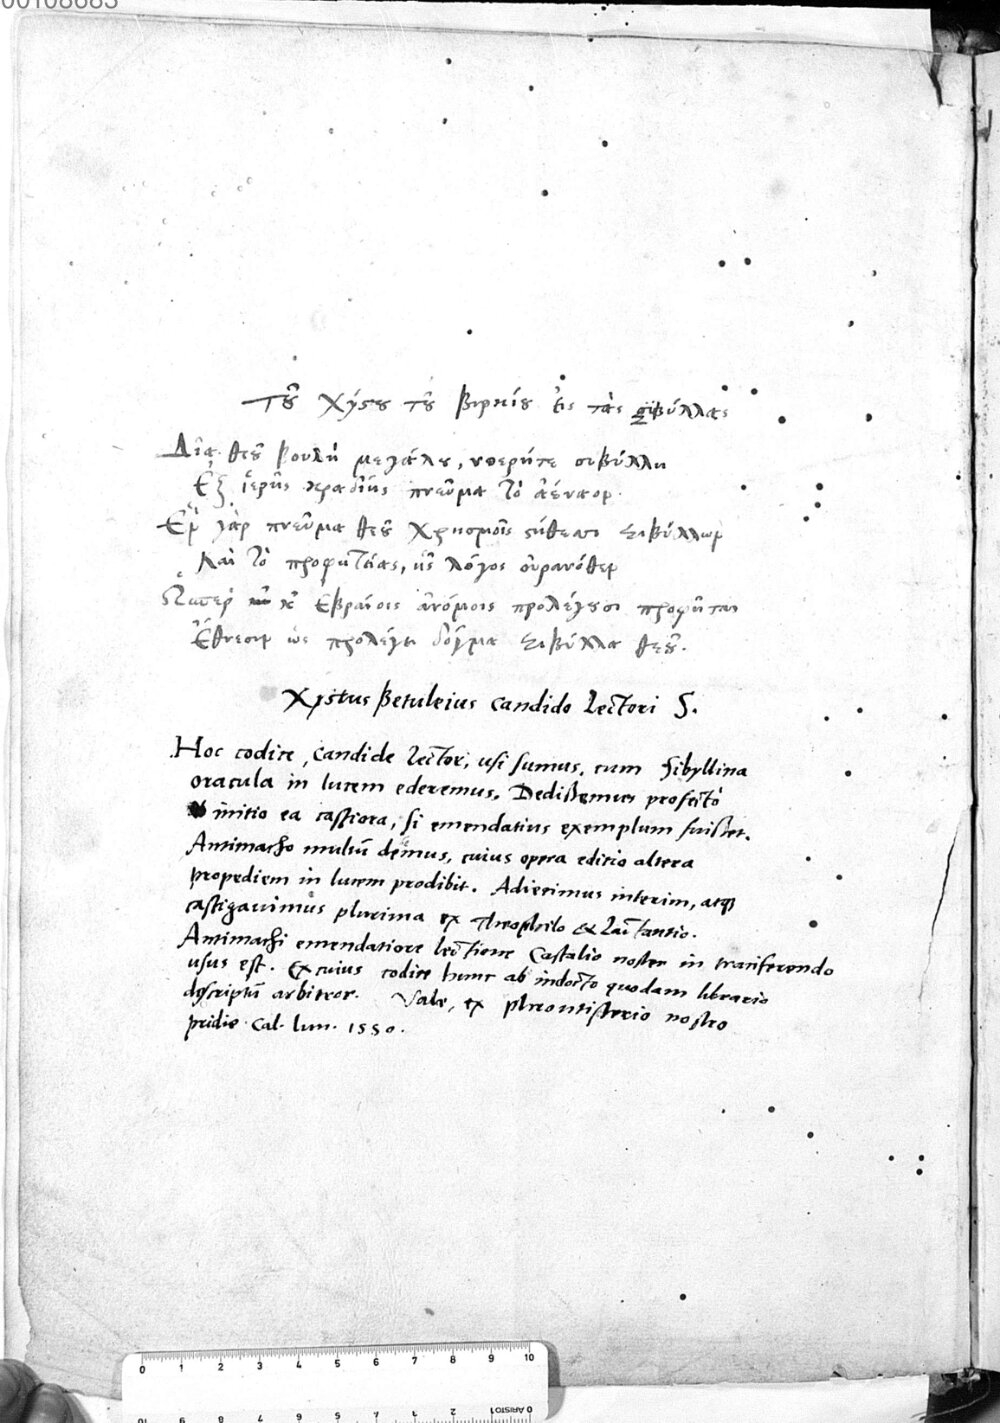 00108683
Τοῦ Χύστου τοῦ Βιρκίου εἰς τὰς σιβύλλας
Δῖα θεοῦ βουλὴ μεγάλου, ὑπερῆτε σιβύλλη
Ἐξ ἱερῆς κραδίης πνεῦμα τὸ ἀέναον.
Ἓν γὰρ πνεῦμα θεοῦ χρησμοῖς Σιβύλλων
Καὶ τὸ προφητείας, λόγος οὐρανόθεν
Ὥσπερ Ἑβραίοις ἀνόμοις προλέγουσι προφῆται
Ἔθνεσιν ὣς προλέγει δόγμα Σιβύλλα θεοῦ.
Xystus Betuleius candido Lectori S.
Hoc codice, candide lector, usi sumus, cum Sibyllina
oracula in lucem ederemus. Dedissemus profecto
initio ea castiora, si emendatius exemplum fuisset.
Antimacho multū demus, cuius opera editio altera
propediem in lucem prodibit. Adiecimus interim, atq
castigavimus plurima ex Theophilo & Lactantio.
Antimachi emendatiore lectione Castalio noster in transferendo
usus est. Ex cuius codice hunc ab indocto quodam librario
descriptū arbitror. Vale, ex phrontisterio nostro
pridie Cal. Iun. 1550.
0 1 2 3 4 5 6 7 8 9 10
ARISTO